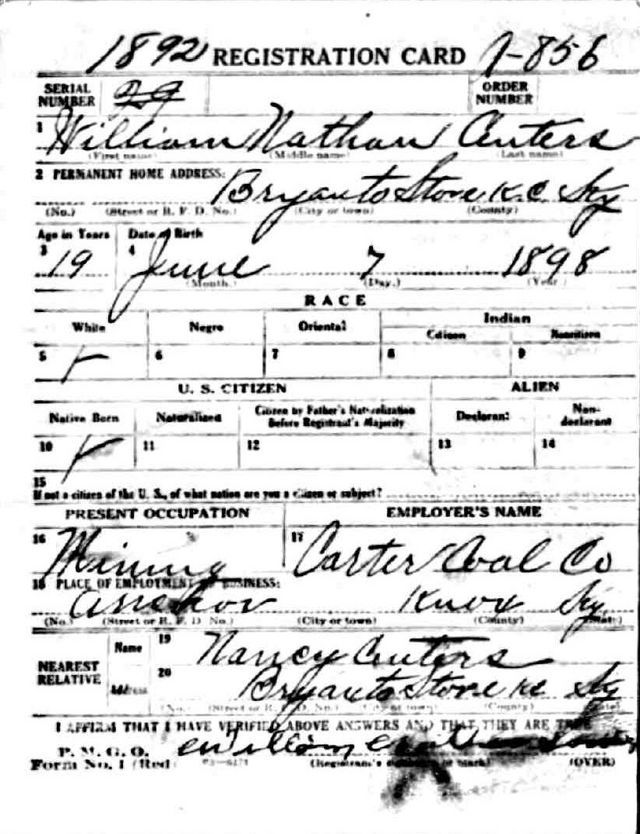 1892 REGISTRATION CARD 1-856
SERIAL NUMBER 29 ORDER NUMBER
1 William Nathan Centers
(First name) (Middle name) (Last name)
2 PERMANENT HOME ADDRESS:
Bryants Store K.C. Ky
(No.) (Street or R. F. D. No.) (City or town) (County)
Age in Years Date of Birth
3 19 4 June 7 1898
(Month.) (Day.) (Year.)
RACE
White Negro Oriental Indian
Citizen Noncitizen
5 6 7 8 9
U. S. CITIZEN ALIEN
Native Born Naturalized Citizen by Father's Naturalization Before Registrant's Majority Declarant Non-declarant
10 11 12 13 14
15
If not a citizen of the U. S., of what nation are you a citizen or subject?
PRESENT OCCUPATION EMPLOYER'S NAME
16 Mining 17 Carter Coal Co
18 PLACE OF EMPLOYMENT OR BUSINESS:
Knox Ky
(No.) (Street or R. F. D. No.) (City or town) (County) (State)
NEAREST RELATIVE
Name 19 Nancy Centers
Address 20 Bryants Store Kc Ky
(No.) (Street or R. F. D. No.) (City or town) (County) (State)
I AFFIRM THAT I HAVE VERIFIED ABOVE ANSWERS AND THAT THEY ARE TRUE
P. M. G. O.
Form No. 1 (Red) William
(Registrant's signature or mark) (OVER)